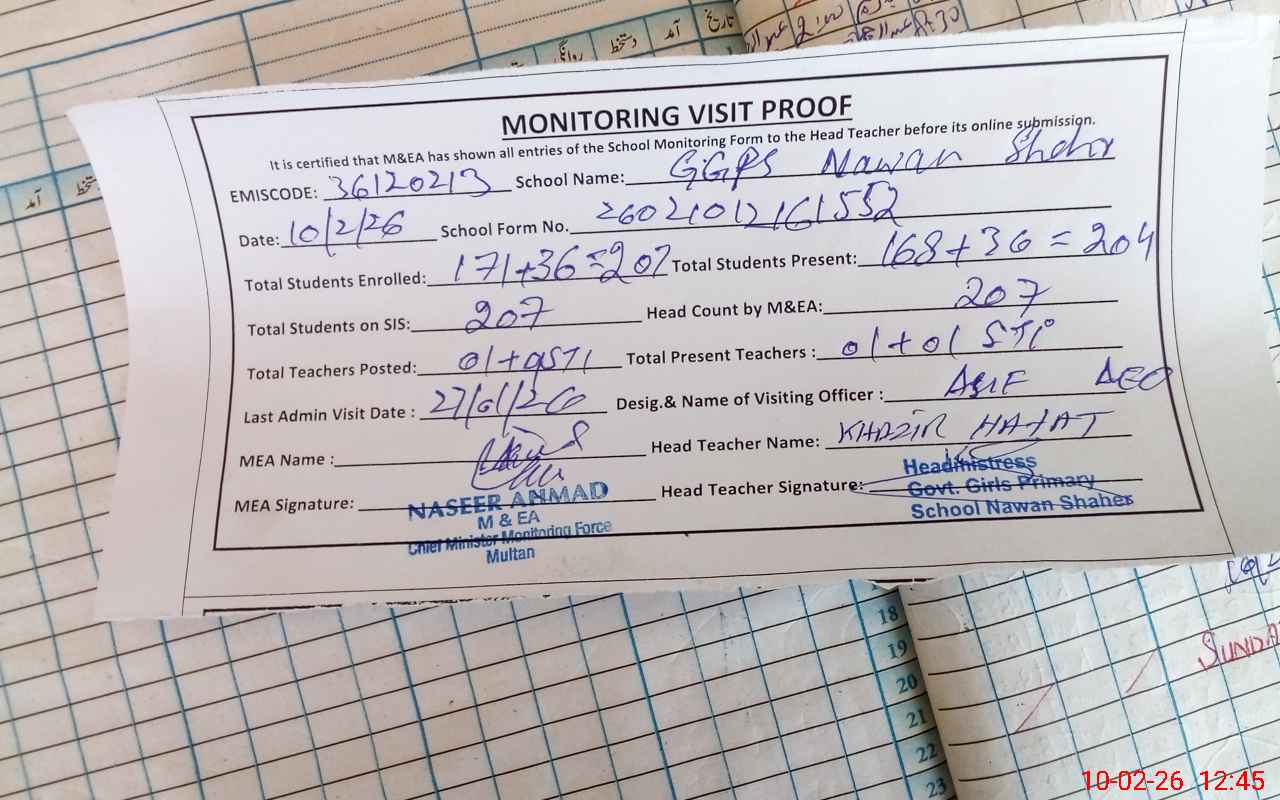 تاریخ آمد دستخط روانگی
2:00
8:30
آمد
MONITORING VISIT PROOF
It is certified that M&EA has shown all entries of the School Monitoring Form to the Head Teacher before its online submission.
EMISCODE: 36120213 School Name: GGPS Nawan Shehr
Date: 10/2/26 School Form No. 26021012161552
Total Students Enrolled: 171+36=207 Total Students Present: 168+36=204
Total Students on SIS: 207 Head Count by M&EA: 207
Total Teachers Posted: 01+ Total Present Teachers : 01+01 STI
Last Admin Visit Date : 27/01/26 Desig.& Name of Visiting Officer : AEO
MEA Name : Head Teacher Name: KHAZIR HAYAT
MEA Signature: Head Teacher Signature:
NASEER AHMAD
M & EA
Chief Minister Monitoring Force
Multan
Headmistress
Govt. Girls Primary
School Nawan Shaher
18
19
20
21
22
23
SUNDA
10-02-26 12:45